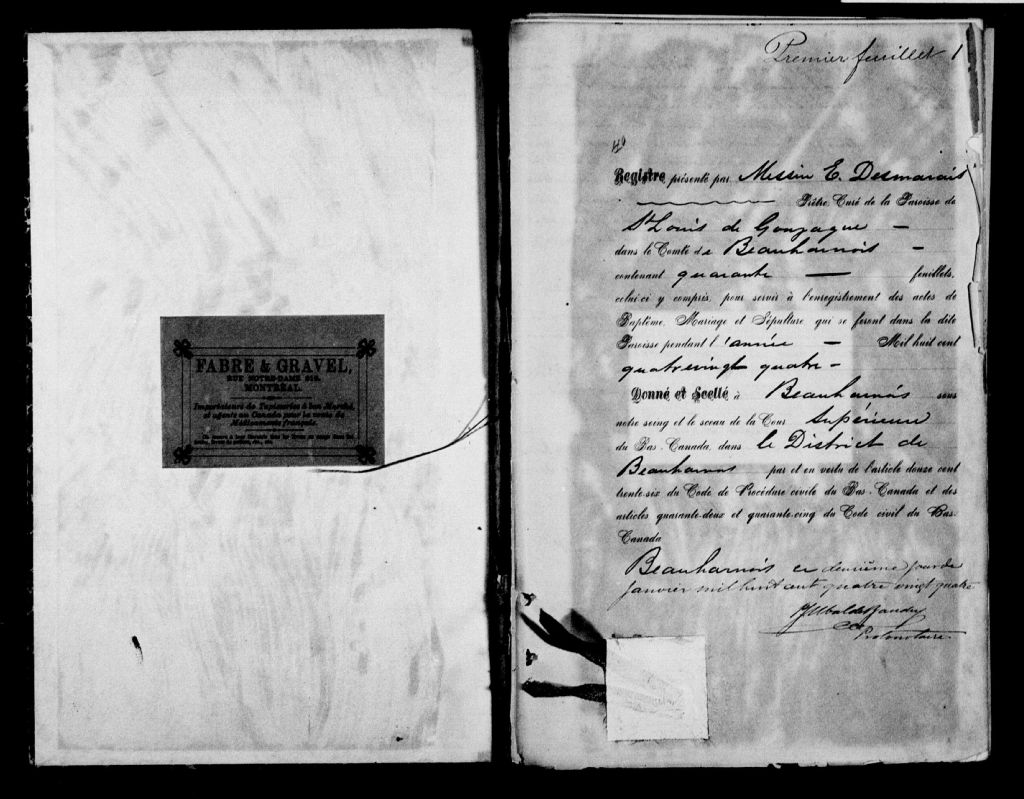 FABRE & GRAVEL,
RUE NOTRE-DAME 219,
MONTRÉAL
Importateurs de Tapisseries à bon Marché,
et agents au Canada pour la vente de
Médicaments français.
Premier feuillet 1
40
Registre présenté par Messire E. Desmarais
Prêtre, Curé de la Paroisse de
St Louis de Gonzague —
dans le Comté de Beauharnois —
contenant quarante — feuillets,
celui-ci y compris, pour servir à l'enregistrement des actes de
Baptême, Mariage et Sépulture qui se feront dans la dite
Paroisse pendant l'année — Mil huit cent
quatrevingt quatre —
Donné et Scellé à Beauharnois sous
notre seing et le sceau de la Cour Supérieure
du Bas-Canada, dans le District de
Beauharnois par et en vertu de l'article douze cent
trente-six du Code de Procédure civile du Bas-Canada et des
articles quarante-deux et quarante-cinq du Code civil du Bas-
Canada
Beauharnois ce deuxième jour de
janvier mil huit cent quatre vingt quatre
Protonotaire